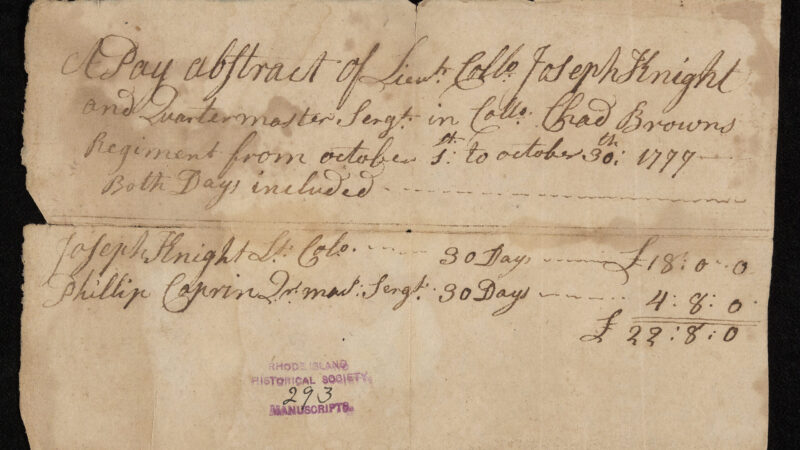 A Pay abstract of Lieut. Collo. Joseph Knight
and Quartermaster Sergt. in Collo. Chad Browns
Regiment from october 1st: to october 30th: 1777
Both Days included
Joseph Knight Lt. Colo. 30 Days £18:0:0
Phillip Caprin Qr. mast. Sergt. 30 Days 4:8:0
£22:8:0
RHODE ISLAND
HISTORICAL SOCIETY
293
MANUSCRIPTS.